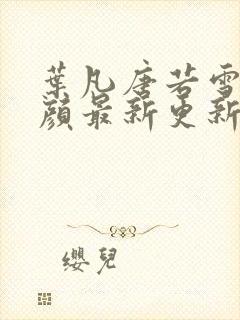 葉凡唐若雪
顏最新更新
纓兒